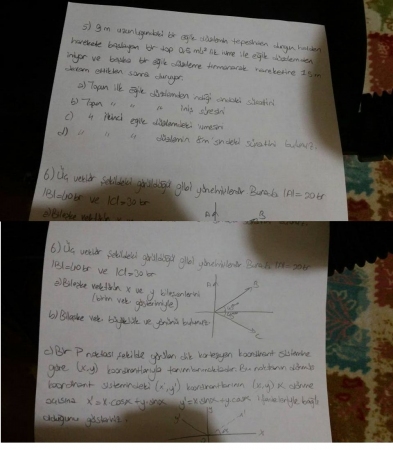 5) 9 m uzunluğundaki bir eğik düzlemin tepesinden durgun halden
harekete başlayan bir top 0,5 m/s² lik ivme ile eğik düzlemden
iniyor ve başka bir eğik düzleme tırmanarak hareketine 15 m
devam ettikten sonra duruyor.
a) Topun ilk eğik düzlemden indiği andaki süratini
b) Topun " " " iniş süresini
c) " ikinci eğik düzlemdeki ivmesini
d) " " " düzlemin 8m'sindeki süratini bulunuz.
6) Üç vektör şekildeki görüldüğü gibi yönelmişlerdir Burada |A|=20br
|B|=40br ve |C|=30br
A B
6) Üç vektör şekildeki görüldüğü gibi yönelmişlerdir Burada |A|=20br
|B|=40br ve |C|=30br
a) Bileşke vektörün x ve y bileşenlerini
(birim vek gösterimiyle)
b) Bileşke vek büyüklük ve yönünü bulunuz.
A B
45°
45°
C
c) Bir P noktası şekildeki görülen dik kartezyen koordinant sistemine
göre (x,y) koordinantlarıyla tanımlanmaktadır. Bu noktanın dönmüş
koordinant sistemindeki (x',y') koordinantlarının (x,y) α dönme
açısına x'=x.cosα+y.sinα y'=-x.sinα+y.cosα ifadeleriyle bağlı
olduğunu gösteriniz.
y' y x'
α x